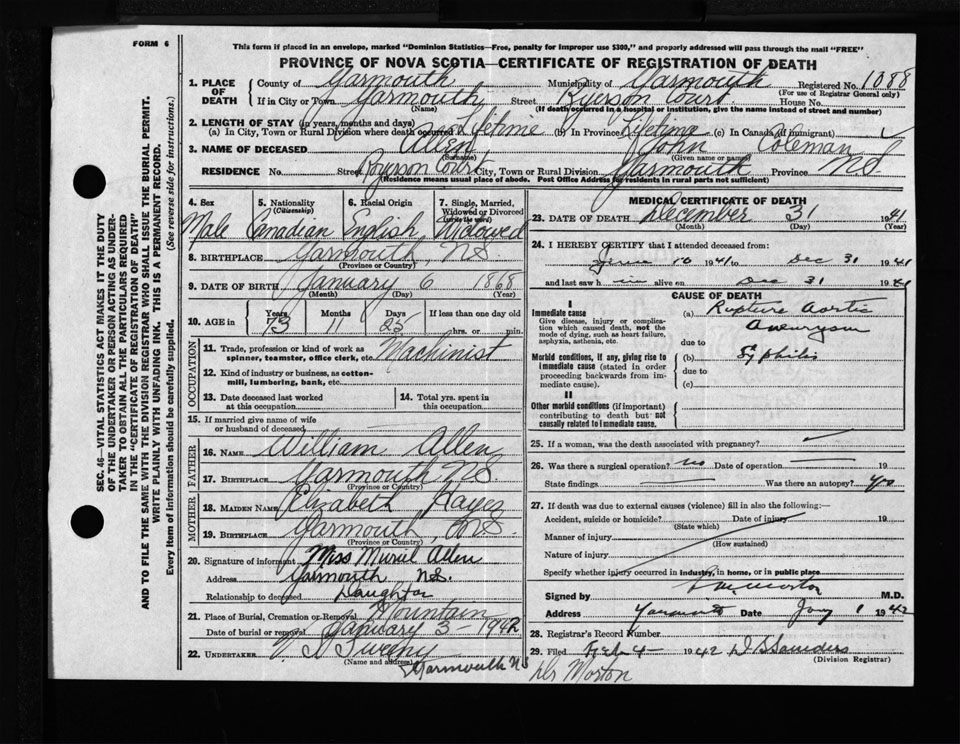 FORM 6
This form if placed in an envelope, marked "Dominion Statistics—Free, penalty for improper use $300," and properly addressed will pass through the mail "FREE"
PROVINCE OF NOVA SCOTIA—CERTIFICATE OF REGISTRATION OF DEATH
1. PLACE OF DEATH County of Yarmouth Municipality of Yarmouth Registered No. 1088
(For use of Registrar General only)
If in City or Town Yarmouth Street Ryerson Court House No.
(Name) (If death occurred in a hospital or institution, give the name instead of street and number)
2. LENGTH OF STAY (in years, months and days)
(a) In City, Town or Rural Division where death occurred Lifetime (b) In Province Lifetime (c) In Canada (if immigrant)
3. NAME OF DECEASED Allen John Coleman
(Surname) (Given name or names)
RESIDENCE No. Street Ryerson Court City, Town or Rural Division Yarmouth Province N.S.
(Residence means usual place of abode. Post Office Address for residents in rural parts not sufficient)
4. Sex Male
5. Nationality (Citizenship) Canadian
6. Racial Origin English
7. Single, Married, Widowed or Divorced (write the word) Widowed
8. BIRTHPLACE Yarmouth, N.S.
(Province or Country)
9. DATE OF BIRTH January 6 1868
(Month) (Day) (Year)
10. AGE in Years 73 Months 11 Days 25 If less than one day hrs. or min.
OCCUPATION
11. Trade, profession or kind of work as spinner, teamster, office clerk, etc. Machinist
12. Kind of industry or business, as cotton-mill, lumbering, bank, etc.
13. Date deceased last worked at this occupation
14. Total yrs. spent in this occupation
15. If married give name of wife or husband of deceased
FATHER
16. NAME William Allen
17. BIRTHPLACE Yarmouth N.S.
(Province or Country)
MOTHER
18. MAIDEN NAME Elizabeth
19. BIRTHPLACE Yarmouth, N.S.
(Province or Country)
20. Signature of informant Miss Muriel Allen
Address Yarmouth N.S.
Relationship to deceased Daughter
21. Place of Burial, Cremation or Removal Mountain
Date of burial or removal January 3 - 1942
22. UNDERTAKER V S Sweeny
(Name and address) Yarmouth NS
MEDICAL CERTIFICATE OF DEATH
23. DATE OF DEATH December 31 1941
(Month) (Day) (Year)
24. I HEREBY CERTIFY that I attended deceased from:
June 10 1941 to Dec 31 1941
and last saw him alive on Dec 31 1941
CAUSE OF DEATH
I
Immediate cause
Give disease, injury or complication which caused death, not the mode of dying, such as heart failure, asphyxia, asthenia, etc.
(a) Rupture Aortic
Aneurysm
due to
Morbid conditions, if any, giving rise to immediate cause (stated in order proceeding backwards from immediate cause).
(b) Syphilis
due to
(c)
II
Other morbid conditions (if important) contributing to death but not causally related to immediate cause.
25. If a woman, was the death associated with pregnancy?
26. Was there a surgical operation? no Date of operation 19
State findings Was there an autopsy? yes
27. If death was due to external causes (violence) fill in also the following:—
Accident, suicide or homicide? Date of injury 19
(State which)
Manner of injury
(How sustained)
Nature of injury
Specify whether injury occurred in industry, in home, or in public place
Signed by Morton M.D.
Address Yarmouth Date Jany 1 1942
28. Registrar's Record Number
29. Filed Feb 4 - 1942 Saunders
(Division Registrar)
Dr Morton
SEC. 46—VITAL STATISTICS ACT MAKES IT THE DUTY
OF THE UNDERTAKER OR PERSON ACTING AS UNDER-
TAKER TO OBTAIN ALL THE PARTICULARS REQUIRED
IN THE "CERTIFICATE OF REGISTRATION OF DEATH"
AND TO FILE THE SAME WITH THE DIVISION REGISTRAR WHO SHALL ISSUE THE BURIAL PERMIT.
WRITE PLAINLY WITH UNFADING INK. THIS IS A PERMANENT RECORD.
Every item of information should be carefully supplied. (See reverse side for instructions.)